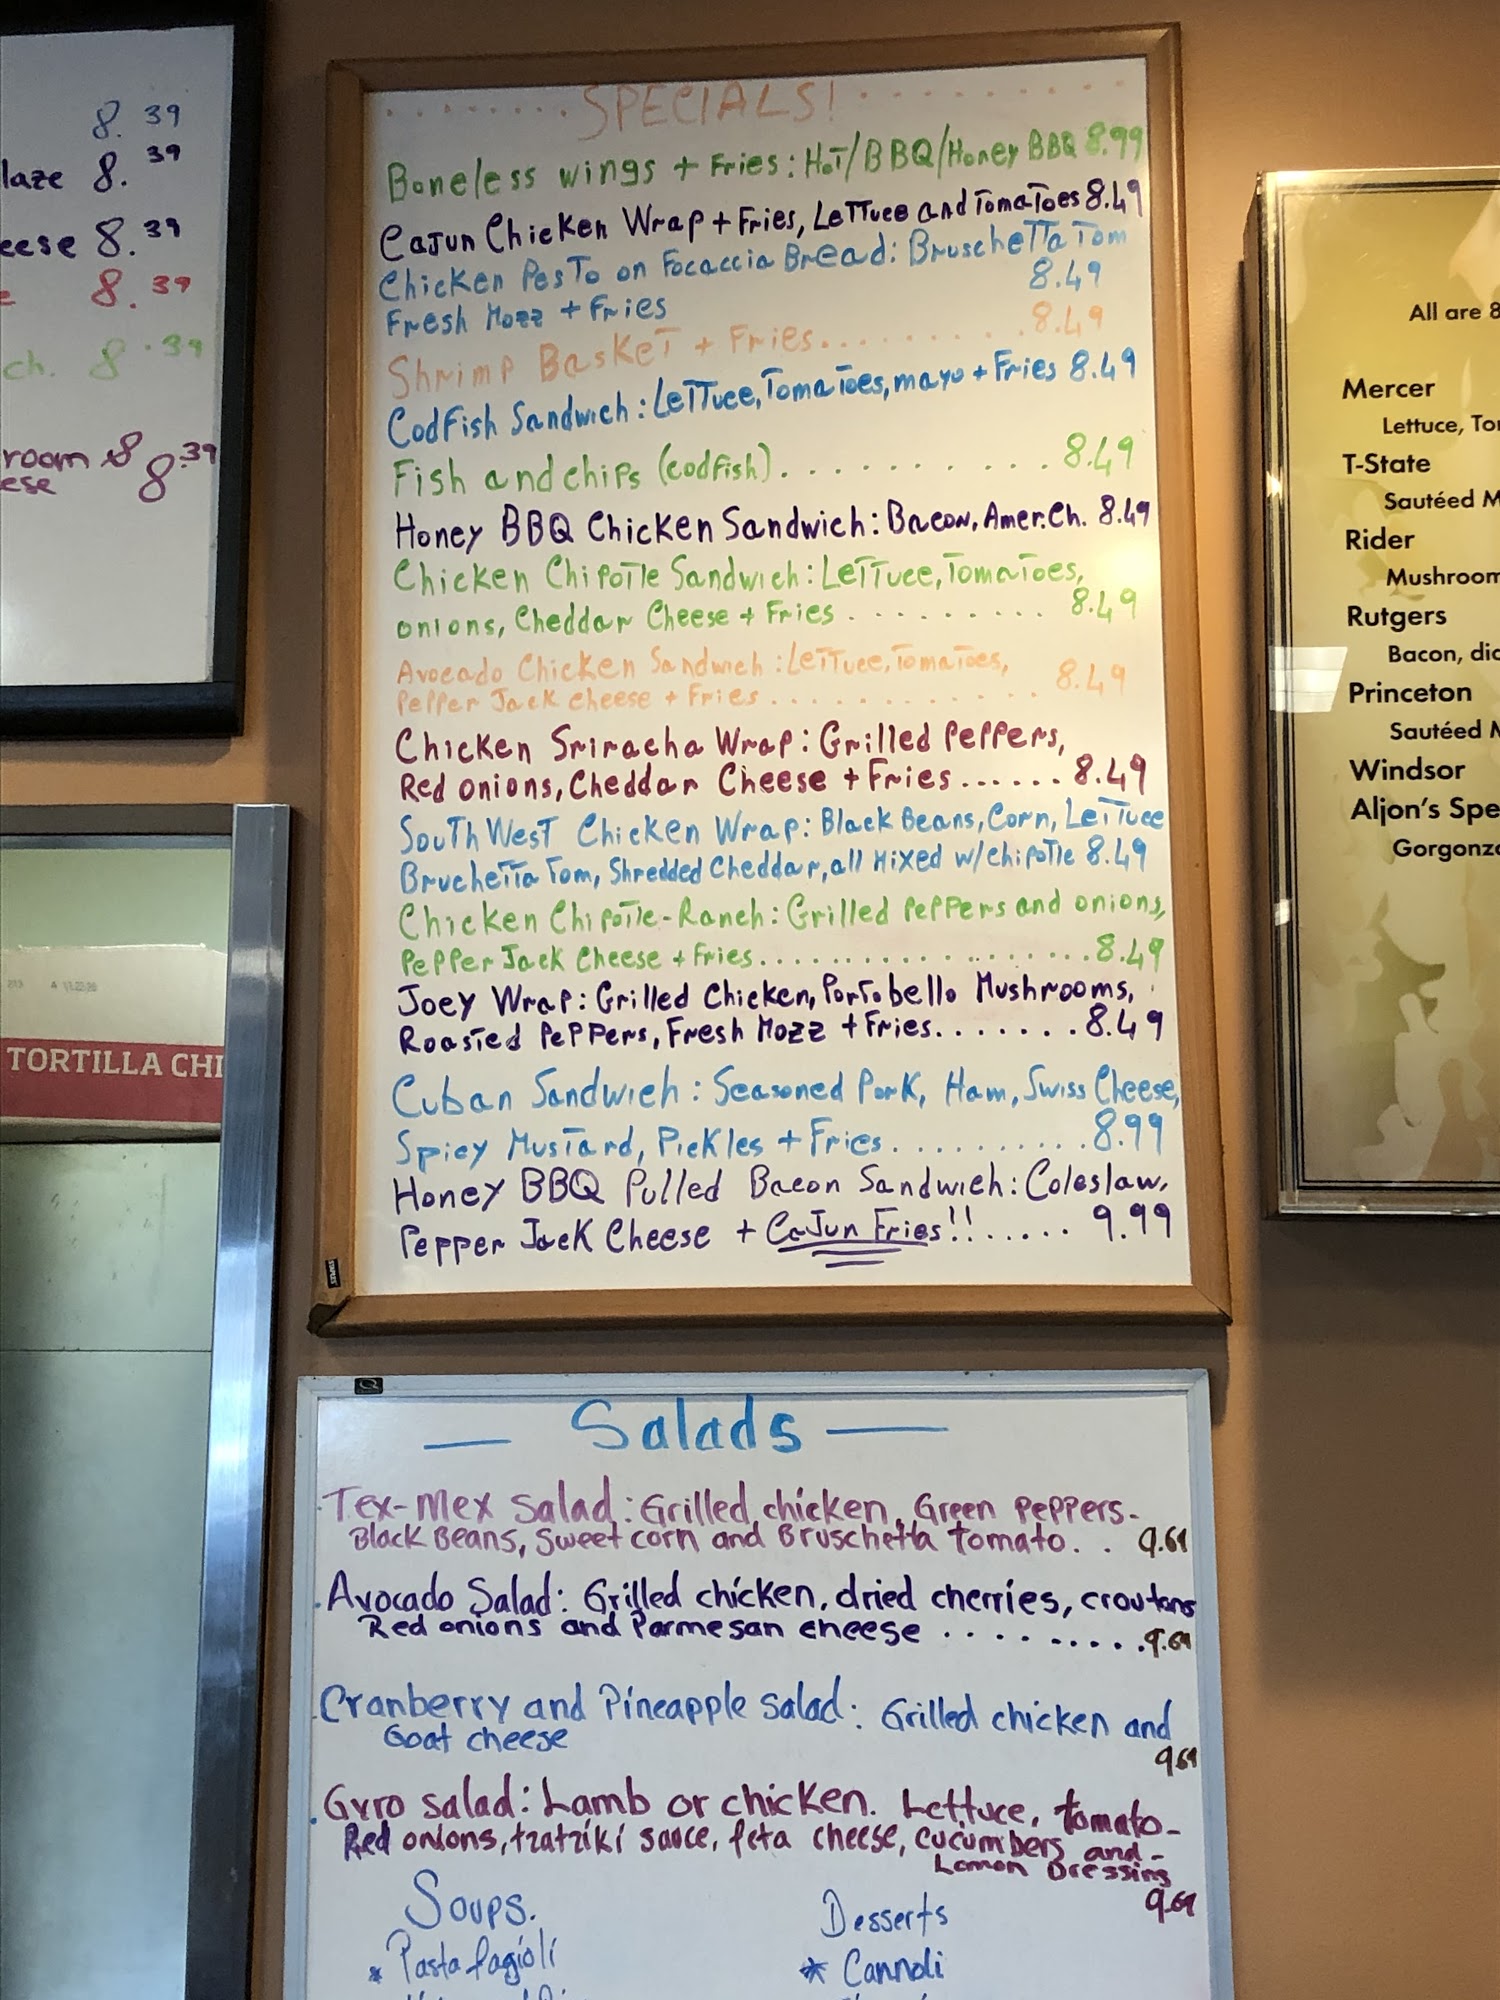 8.39
laze 8.39
eese 8.39
e 8.39
ch. 8.39
room 8 8.39
ese
TORTILLA CHI
.......SPECIALS!..........
Boneless wings + Fries: HoT/BBQ/Honey BBQ 8.99
Cajun Chicken Wrap + Fries, LeTTuce and TomaToes 8.49
Chicken PesTo on Focaccia Bread: BruscheTTa Tom
Fresh Mozz + Fries 8.49
Shrimp BaskeT + Fries......... 8.49
CodFish Sandwich: LeTTuce, TomaToes, mayo + Fries 8.49
Fish and chips (codfish)........... 8.49
Honey BBQ Chicken Sandwich: Bacon, Amer.Ch. 8.49
Chicken ChipoTle Sandwich: LeTTuce, TomaToes,
onions, Cheddar Cheese + Fries ......... 8.49
Avocado Chicken Sandwich: LeTTuce, TomaToes,
Pepper Jack cheese + Fries .......... 8.49
Chicken Sriracha Wrap: Grilled Peppers,
Red onions, Cheddar Cheese + Fries ...... 8.49
SouThWesT Chicken Wrap: Black Beans, Corn, LeTTuce
BrucheTTa Tom, Shredded Cheddar, all Mixed w/chipoTle 8.49
Chicken ChipoTle-Ranch: Grilled Peppers and onions,
Pepper Jack Cheese + Fries................. 8.49
Joey Wrap: Grilled Chicken, PorTobello Mushrooms,
RoasTed Peppers, Fresh Mozz + Fries....... 8.49
Cuban Sandwich: Seasoned Pork, Ham, Swiss Cheese,
Spicy MusTard, Pickles + Fries.......... 8.99
Honey BBQ Pulled Bacon Sandwich: Coleslaw,
Pepper Jack Cheese + Cajun Fries!!...... 9.99
STAPLES
— Salads —
. Tex-Mex Salad: Grilled chicken, Green Peppers-
Black Beans, Sweet corn and Bruschetta tomato. . 9.69
. Avocado Salad: Grilled chicken, dried cherries, croutons
Red onions and Parmesan cheese .......... 9.69
. Cranberry and Pineapple salad: Grilled chicken and
Goat cheese
9.69
. Gyro salad: Lamb or chicken. Lettuce, tomato-
Red onions, tzatziki sauce, feta cheese, cucumbers and-
Lemon Dressing
9.69
Soups.
* Pasta fagioli
Desserts
* Cannoli
All are 8
Mercer
Lettuce, To
T-State
Sautéed M
Rider
Mushroom
Rutgers
Bacon, dic
Princeton
Sautéed M
Windsor
Aljon's Spe
Gorgonzo